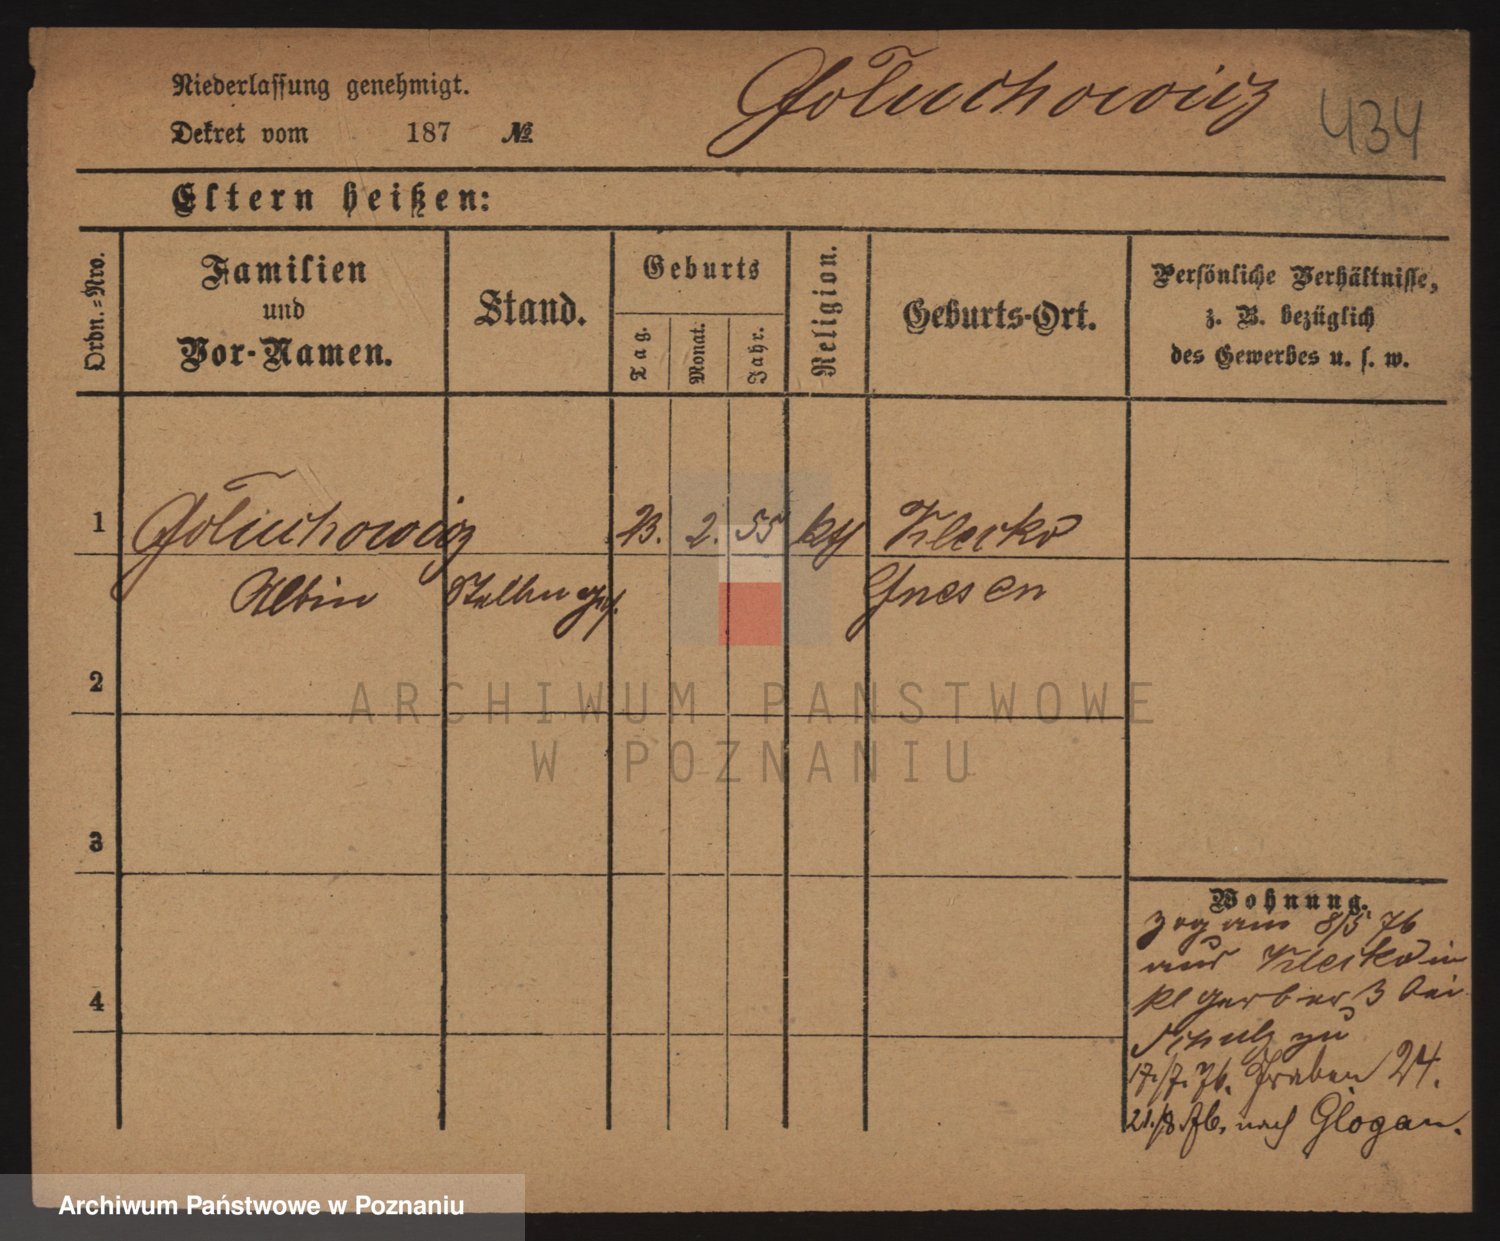 Niederlassung genehmigt.
Dekret vom 187 №
Gołuchowicz
434
Eltern heißen:
Ordn.-Nro.
Familien
und
Vor-Namen.
Stand.
Geburts
Tag.
Monat.
Jahr.
Religion.
Geburts-Ort.
Persönliche Verhältnisse,
z. B. bezüglich
des Gewerbes u. s. w.
1 Gołuchowicz 23. 2. 55 kth Klecko
Albin Gnesen
2
3
4
Wohnung.
zog am 8/5 76
aus Klecko in
kl Gerber 3 bei
Schulz zu
17./7. 76. Graben 24.
21./8. 76. nach Glogau.
ARCHIWUM PAŃSTWOWE
W POZNANIU
Archiwum Państwowe w Poznaniu